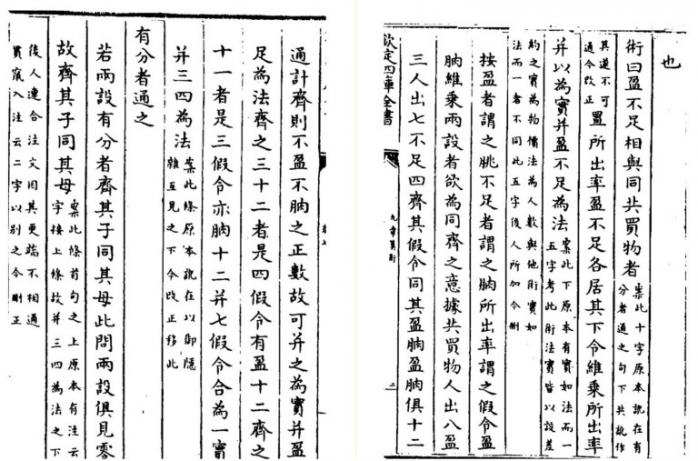 也
術曰盈不足相與同共買物者案此十字原本訛在有
分者通之句下共訛作
其遂不可
通今改正置所出率盈不足各居其下令維乘所出率
并以為實并盈不足為法案此下原本有實如法而一
五字考此術法實皆以設差
約之實為物價法為人數與他術實如
法而一者不同此五字後人所加今刪
按盈者謂之朓不足者謂之朒所出率謂之假令盈
朒維乘兩設者欲為同齊之意據共買物人出八盈
三人出七不足四齊其假令同其盈朒盈朒俱十二
欽定四庫全書
九章算術
二
通計齊則不盈不朒之正數故可并之為實并盈
足為法齊之三十二者是四假令有盈十二齊之
十一者是三假令亦朒十二并七假令合為一實
并三四為法案此條原本訛在以御隱
雜互見之下今改正移此
有分者通之
若兩設有分者齊其子同其母此問兩設俱見零
故齊其子同其母案此條首句之上原本有注云
字接上條故并三四為法之下
後人連合注文因其更端不相通
貫竄入注云二字以別之今刪正